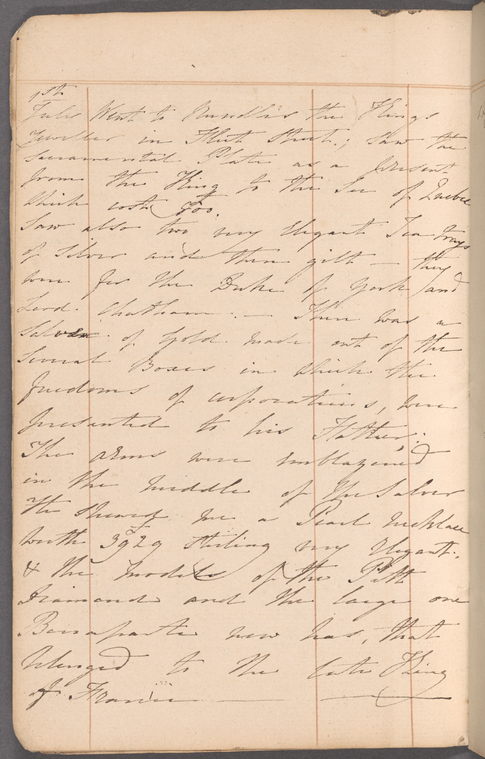 1st
Feby Went to Rundles the Kings
Jeweller in Fleet Street; saw the
Sacramental Plate as a present
from the King to the See of Quebec
which cost £
Saw also two very Elegant Tea trays
of Silver and then gilt — they
were for the Duke of York and
Lord Chatham. — There was a
Salver of Gold made out of the
several Boxes in which the
freedoms of corporations, were
presented to his Father;
The arms were emblazened
in the middle of the Salver
He shewed me a Pearl Necklace
worth 3929 sterling very Elegant.
& the models of the Pitt
Diamond and the large one
Bonaparte now has, that
belonged to the late King
of France